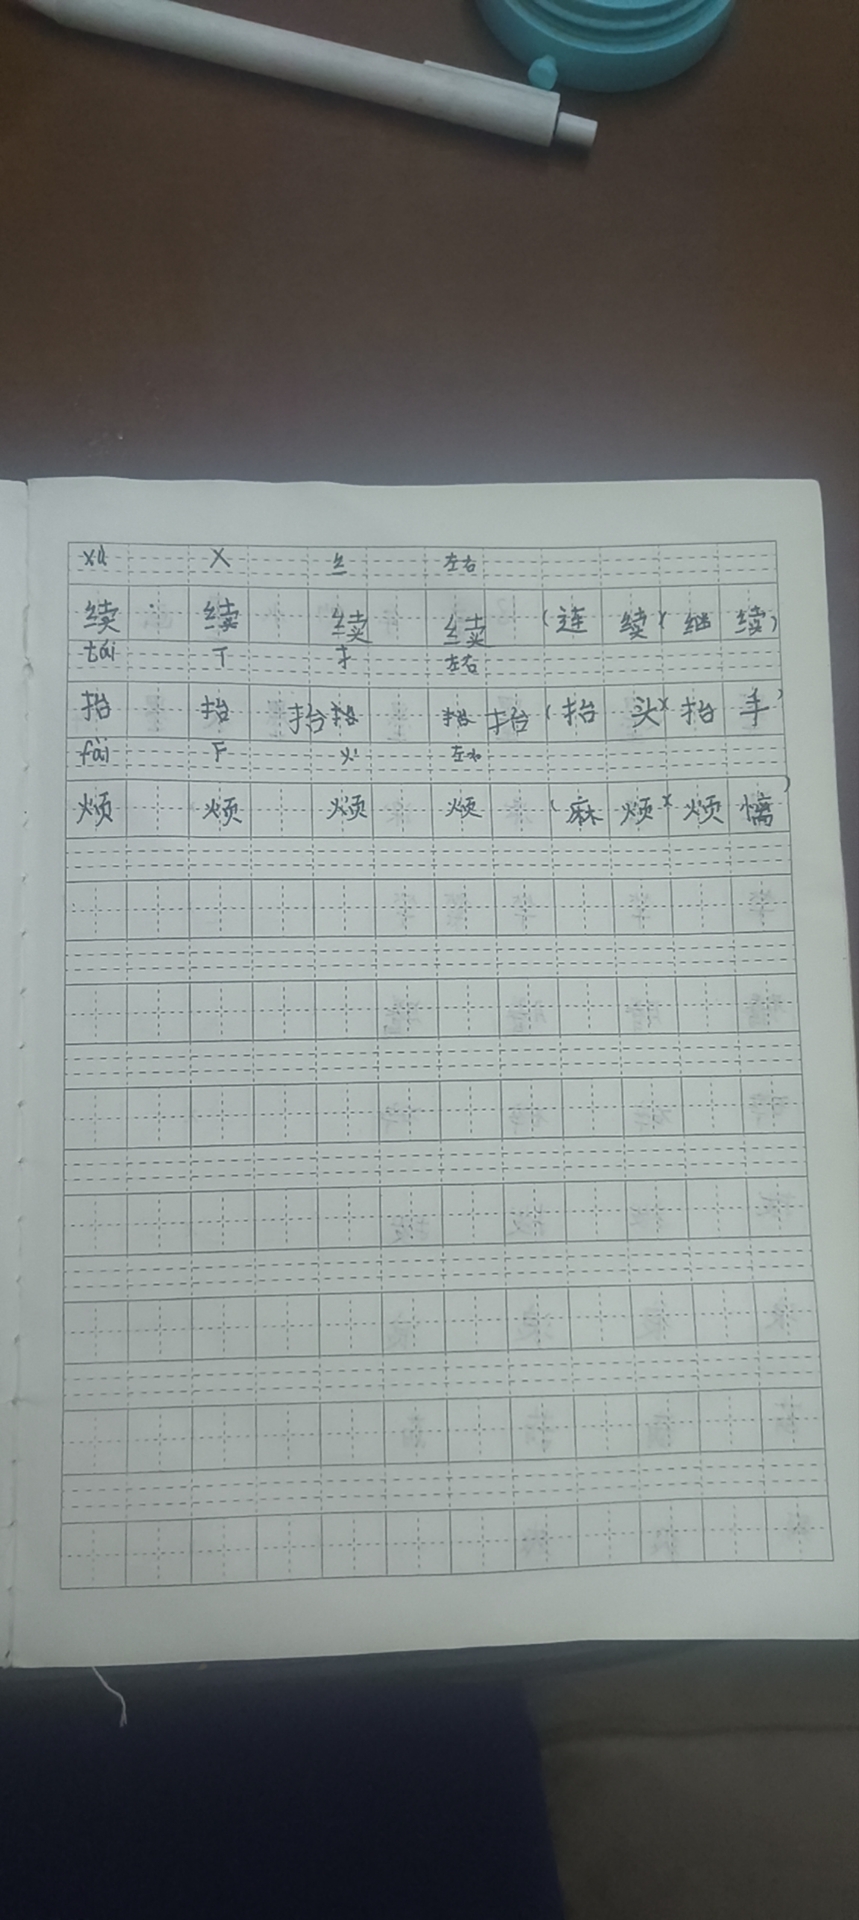 xù X 纟 左右
续 续 续 续 (连续)(继续)
tái T 扌 左右
抬 抬 抬 抬 抬 抬 (抬头)(抬手)
fái F 火 左右
烦 烦 烦 烦 (麻烦)(烦)